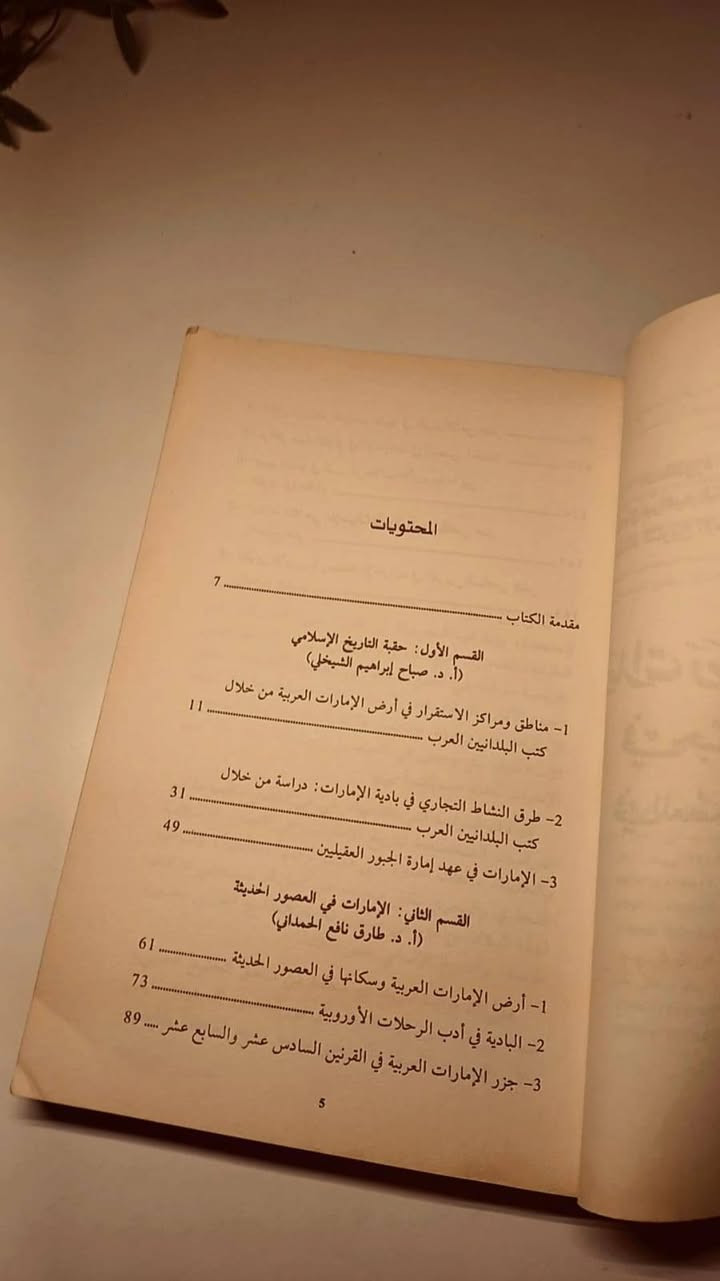 المحتويات
مقدمة الكتاب ........................ 7
القسم الأول: حقبة التاريخ الإسلامي
(أ. د. صباح إبراهيم الشيخلي)
1- مناطق ومراكز الاستقرار في أرض الإمارات العربية من خلال
كتب البلدانيين العرب ........................ 11
2- طرق النشاط التجاري في بادية الإمارات: دراسة من خلال
كتب البلدانيين العرب ........................ 31
3- الإمارات في عهد إمارة الجبور العقيليين ........................ 49
القسم الثاني: الإمارات في العصور الحديثة
(أ. د. طارق نافع الحمداني)
1- أرض الإمارات العربية وسكانها في العصور الحديثة ........................ 61
2- البادية في أدب الرحلات الأوروبية ........................ 73
3- جزر الإمارات العربية في القرنين السادس عشر والسابع عشر ..... 89
5